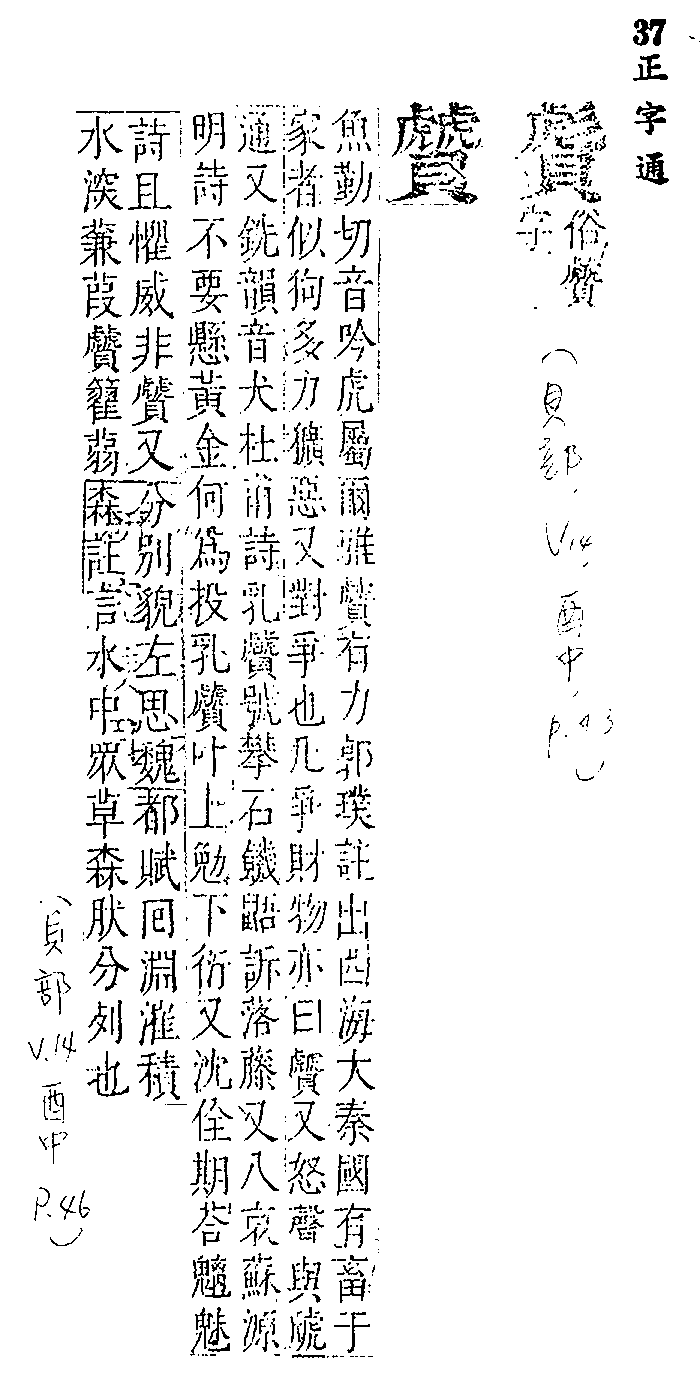 37正字通
俗贙
字
(貝部, V.14, 酉中, P.43)
贙
魚勤切音吟虎屬爾雅贙有力郭璞註出西海大秦國有畜于
家者似狗多力獷惡又對爭也凡爭財物亦曰贙又怒聲與虤
通又銑韻音犬杜甫詩乳贙號攀石饑鼯訴落藤又八哀蘇源
明詩不要懸黃金何爲投乳贙叶上勉下衍又沈佺期荅魑魅
詩且懼威非贙又分別貌左思魏都賦囘淵漼積
水深蒹葭贙雚蒻森註言水中眾草森肰分列也
(貝部 V.14 酉中 P.46)